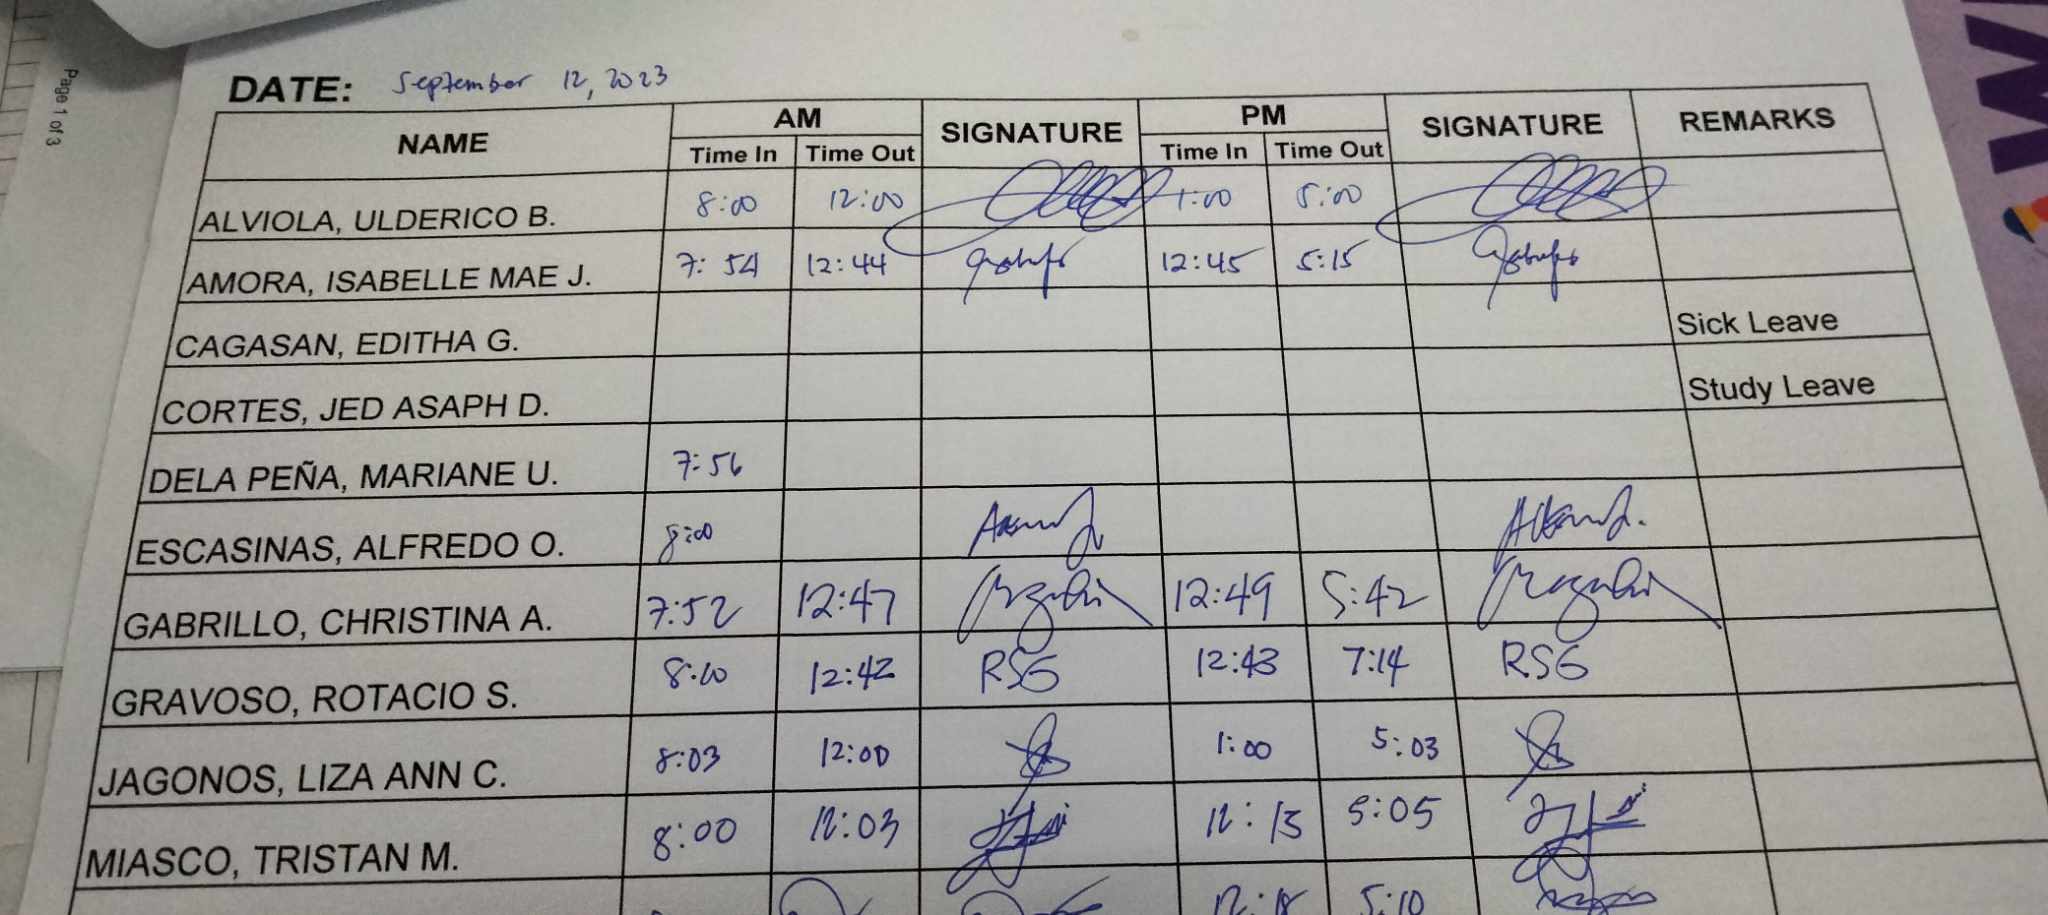 Page 1 of 3
DATE: September 12, 2023
NAME AM SIGNATURE PM SIGNATURE REMARKS
Time In Time Out Time In Time Out
ALVIOLA, ULDERICO B. 8:00 12:00 1:00 5:00
AMORA, ISABELLE MAE J. 7:54 12:44 12:45 5:15
CAGASAN, EDITHA G. Sick Leave
CORTES, JED ASAPH D. Study Leave
DELA PEÑA, MARIANE U. 7:56
ESCASINAS, ALFREDO O. 8:00
GABRILLO, CHRISTINA A. 7:52 12:47 12:49 5:42
GRAVOSO, ROTACIO S. 12:42 RSG 12:43 7:14 RSG
JAGONOS, LIZA ANN C. 8:03 12:00 1:00 5:03
MIASCO, TRISTAN M. 8:00 12:03 12:13 5:05
12:18 5:10